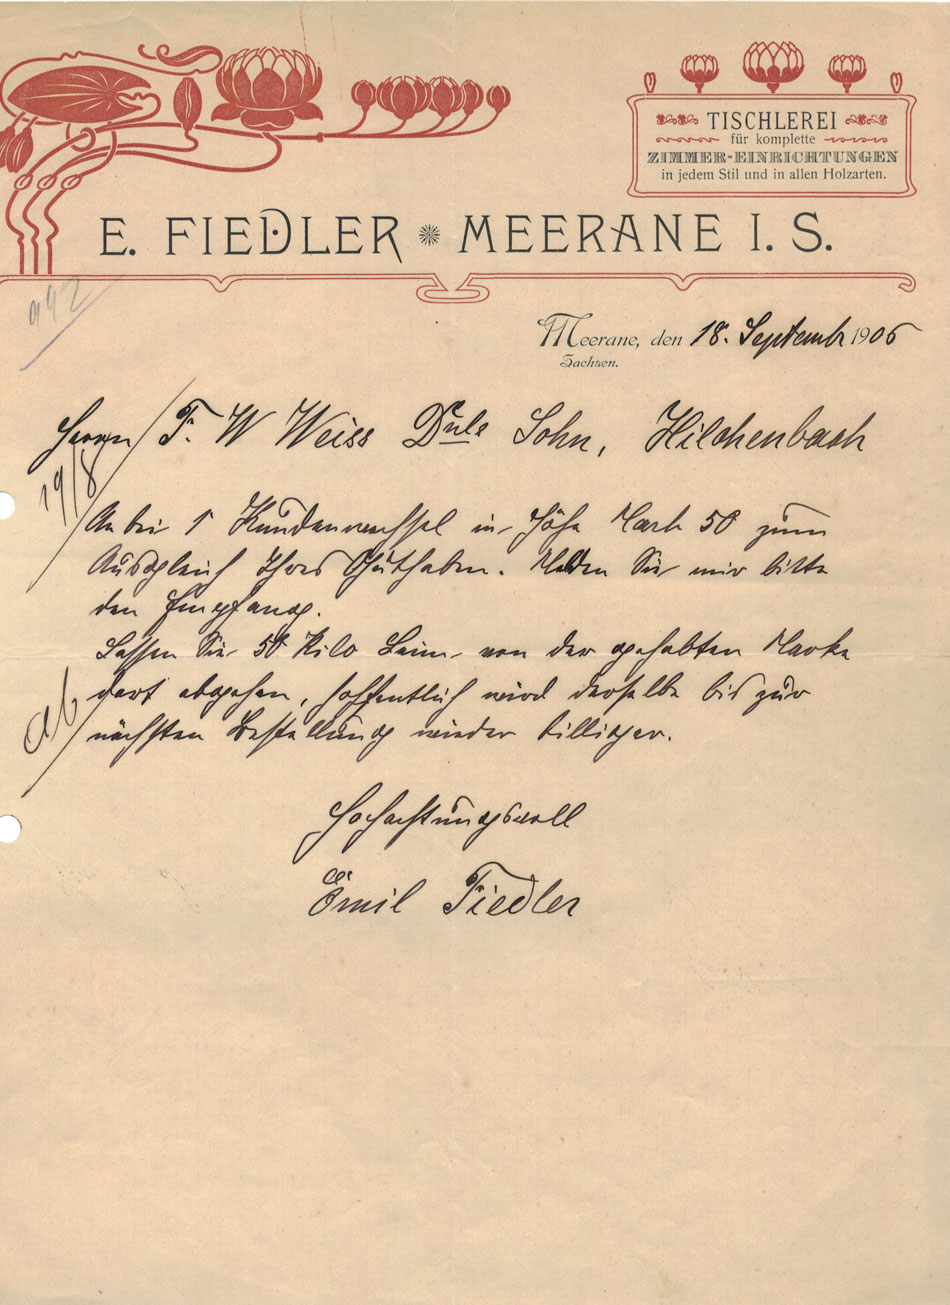 TISCHLEREI
für komplette
ZIMMER-EINRICHTUNGEN
in jedem Stil und in allen Holzarten.
E. FIEDLER MEERANE I. S.
992
Meerane, den 18. September 1906
Sachsen.
Herrn F. W Weiss Sohn, Hilchenbach
19/8
Anbei 1 Kundenwechsel in Höhe Mark 50 zum
Ausgleich Ihres Guthaben. Melden Sie mir bitte
den Empfang.
Lassen Sie 50 Kilo Leim von der gehabten Marke
dort abgehen, hoffentlich wird derselbe bis zur
ab
nächsten Bestellung wieder billiger.
Hochachtungsvoll
Emil Fiedler